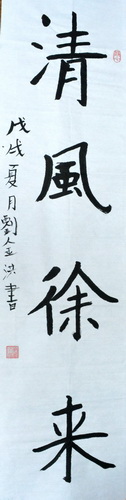 清風徐来
戊戌夏月劉金洪書